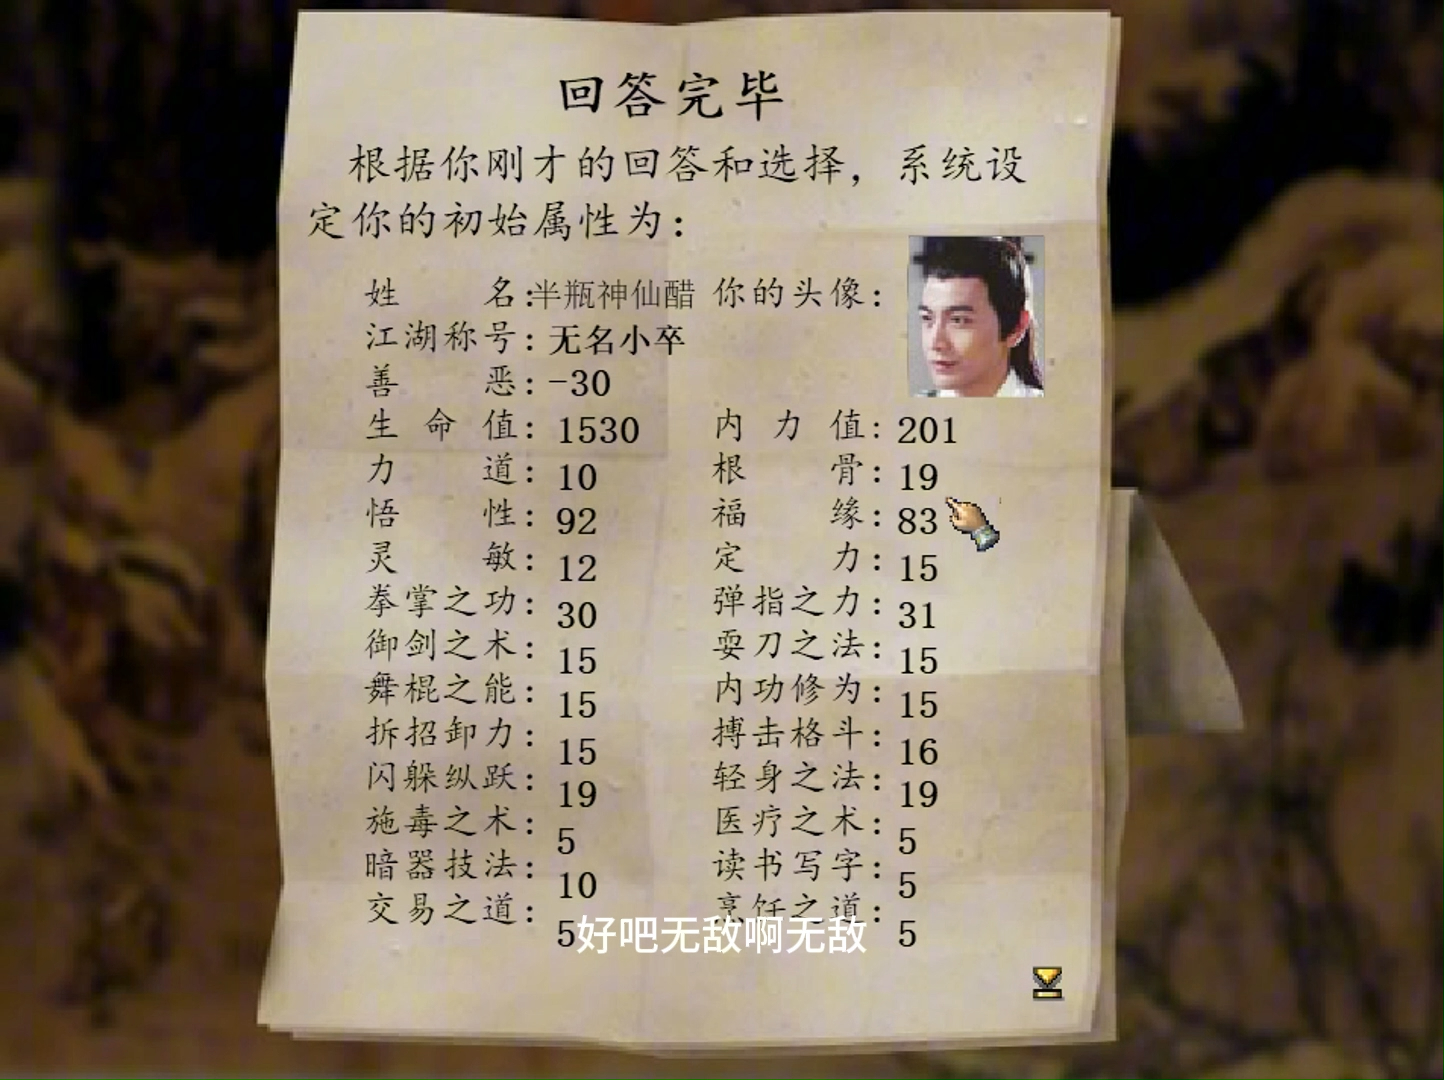 回答完毕
根据你刚才的回答和选择，系统设
定你的初始属性为：
姓名：半瓶神仙醋 你的头像：
江湖称号：无名小卒
善恶：-30
生命值：1530 内力值：201
力道：10 根骨：19
悟性：92 福缘：83
灵敏：12 定力：15
拳掌之功：30 弹指之力：31
御剑之术：15 耍刀之法：15
舞棍之能：15 内功修为：15
拆招卸力：15 搏击格斗：16
闪躲纵跃：19 轻身之法：19
施毒之术：5 医疗之术：5
暗器技法：10 读书写字：5
交易之道：5 烹饪之道：5
好吧无敌啊无敌